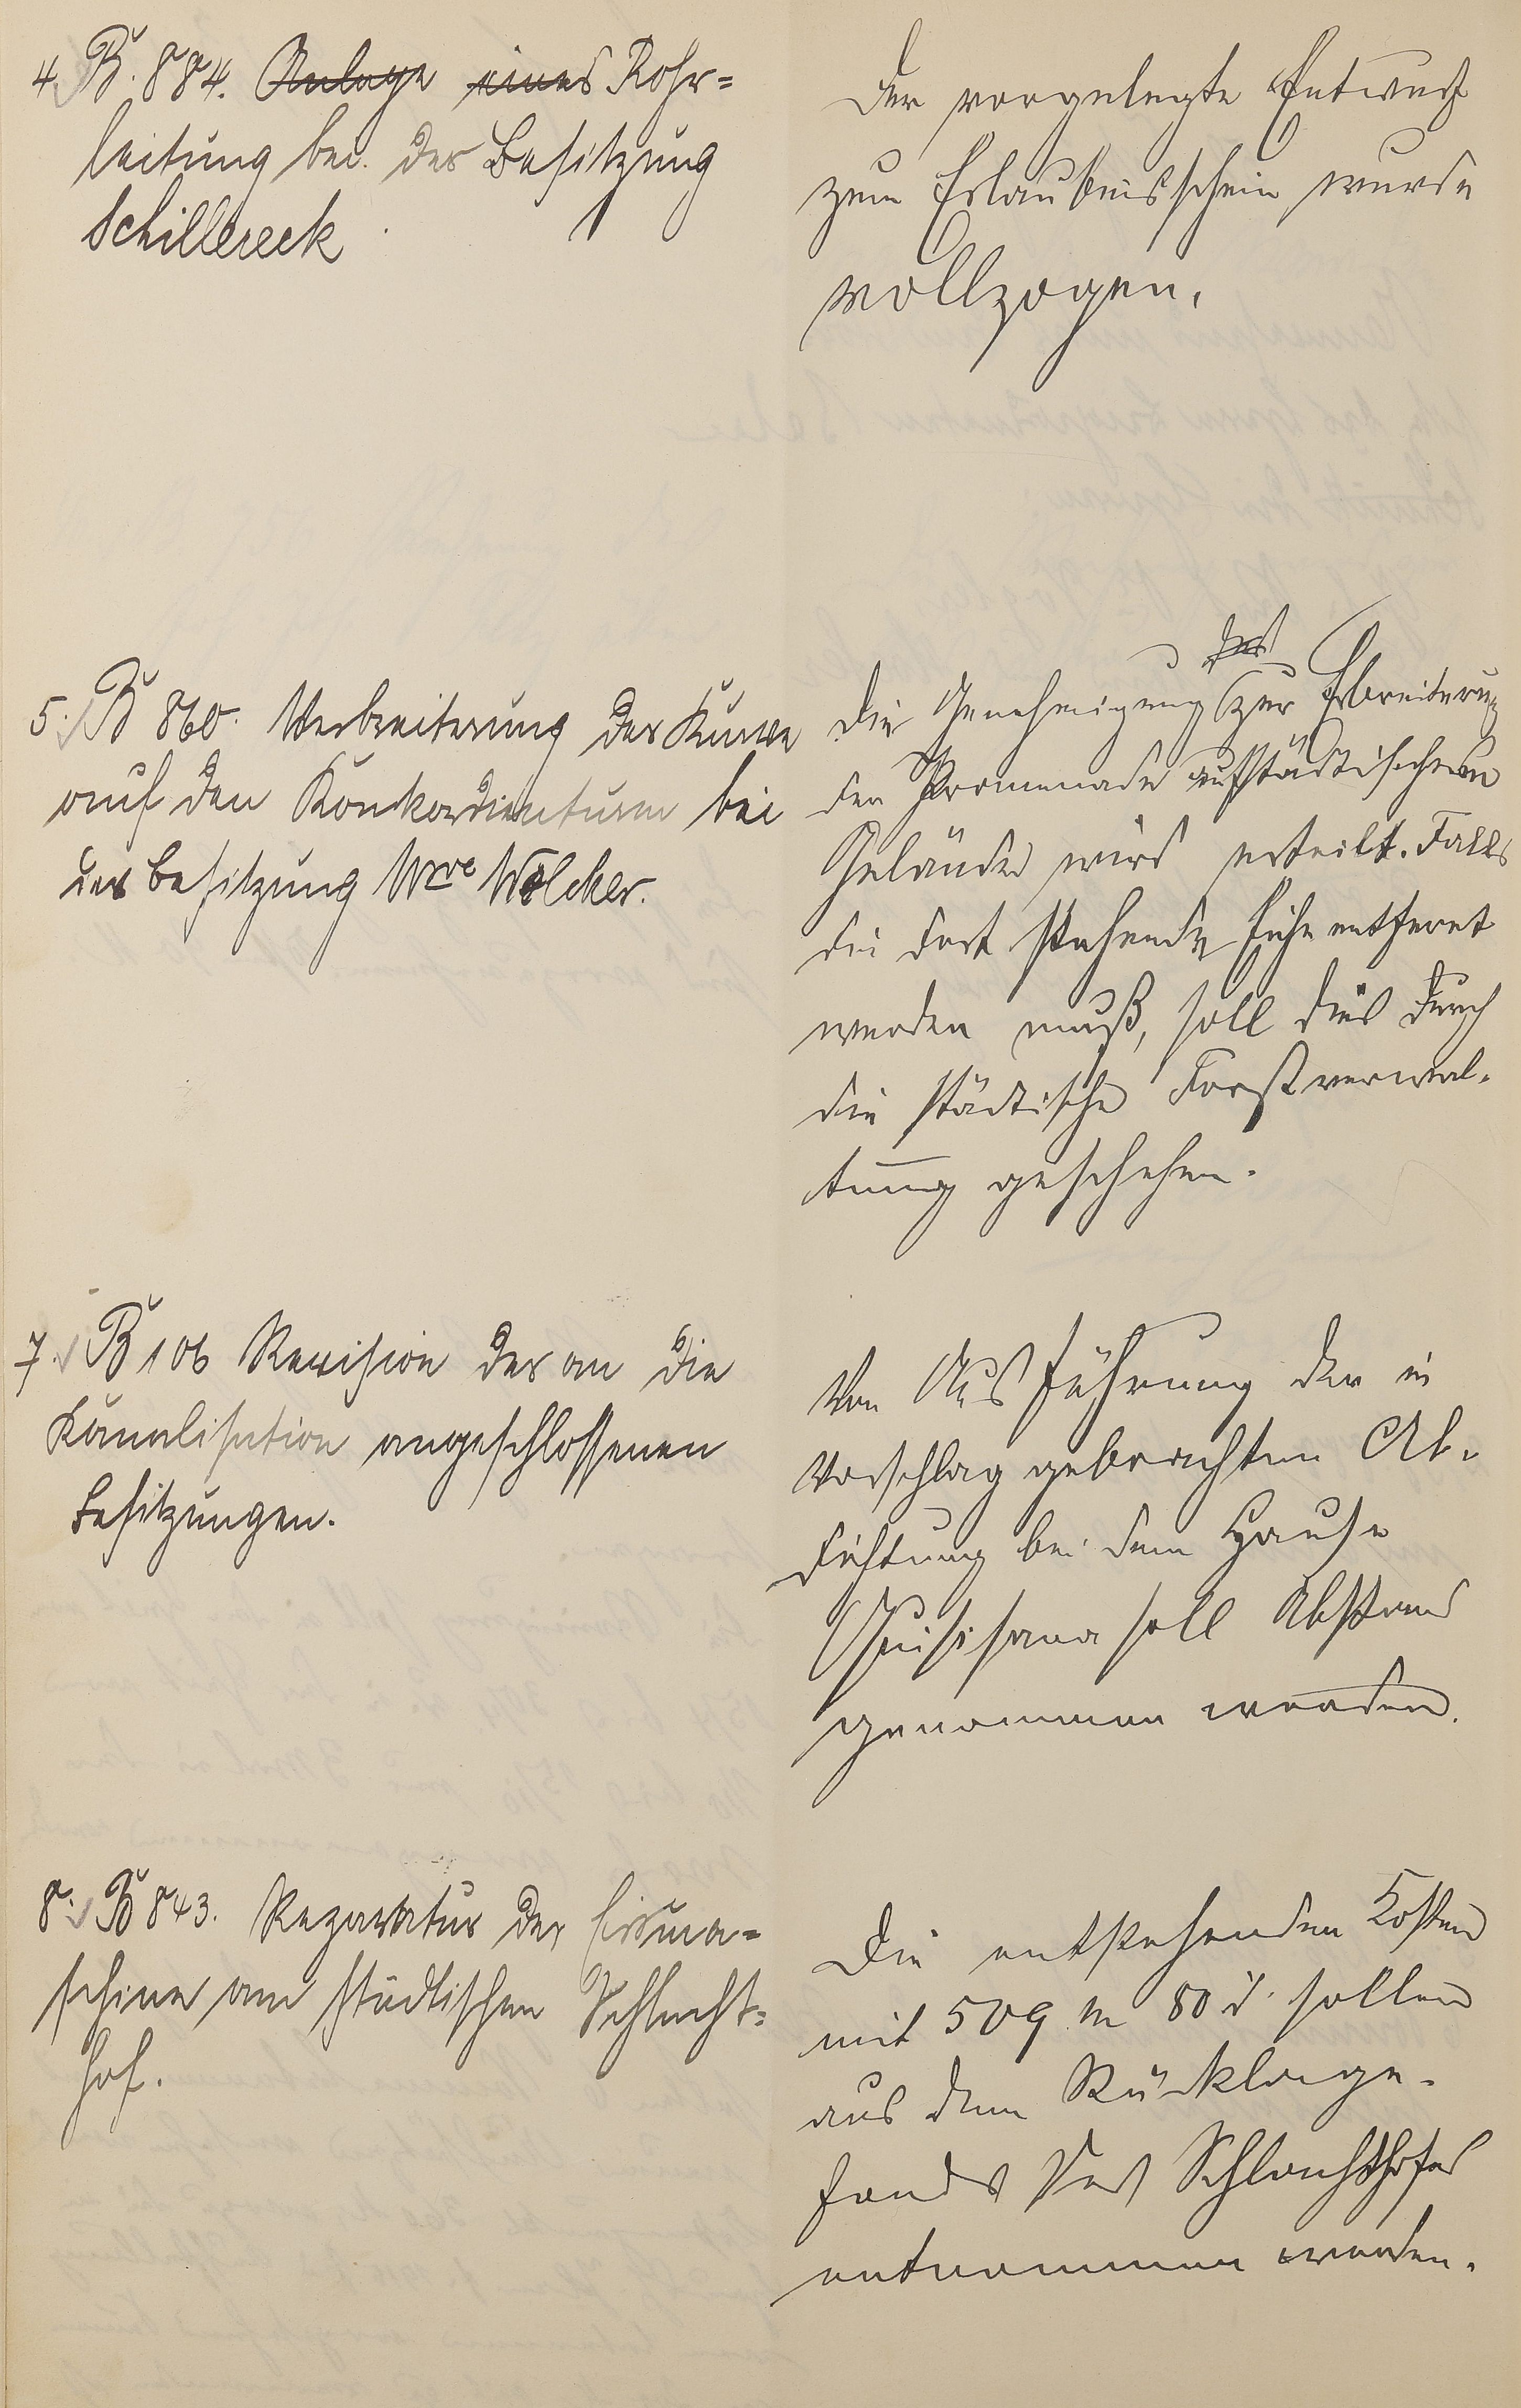 4. B. 884. Anlage eines Rohr=
leitung bei der Besitzung
Schillereck
Der vorgelegte Entwurf
zum Erlaubnisschein wurde
vollzogen.
5. B 860. Verbreiterung der Kurve
auf den Konkordienturm bei
der Besitzung Wwe Wölcker.
des
Die Genehmigung zur Verbreiterung
der Promenade auf städtischem
Gelände wird erteilt. Falls
die dort stehende Eiche entfernt
werden muß, soll dies durch
die städtische Forstverwal-
tung geschehen.
7. B 106 Revision der an die
Kanalisation angeschlossenen
Besitzungen.
Von Ausführung der in
Vorschlag gebrachten Ab-
dichtung bei dem Hause
Quisisana soll Abstand
genommen werden.
8. B 843. Reparatur der Eisma=
schine am städtischen Schlacht=
hof.
Die entstehenden Kosten
mit 509 M 80 d. sollen
aus dem Rücklage-
fonds des Schlachthofes
entnommen werden.